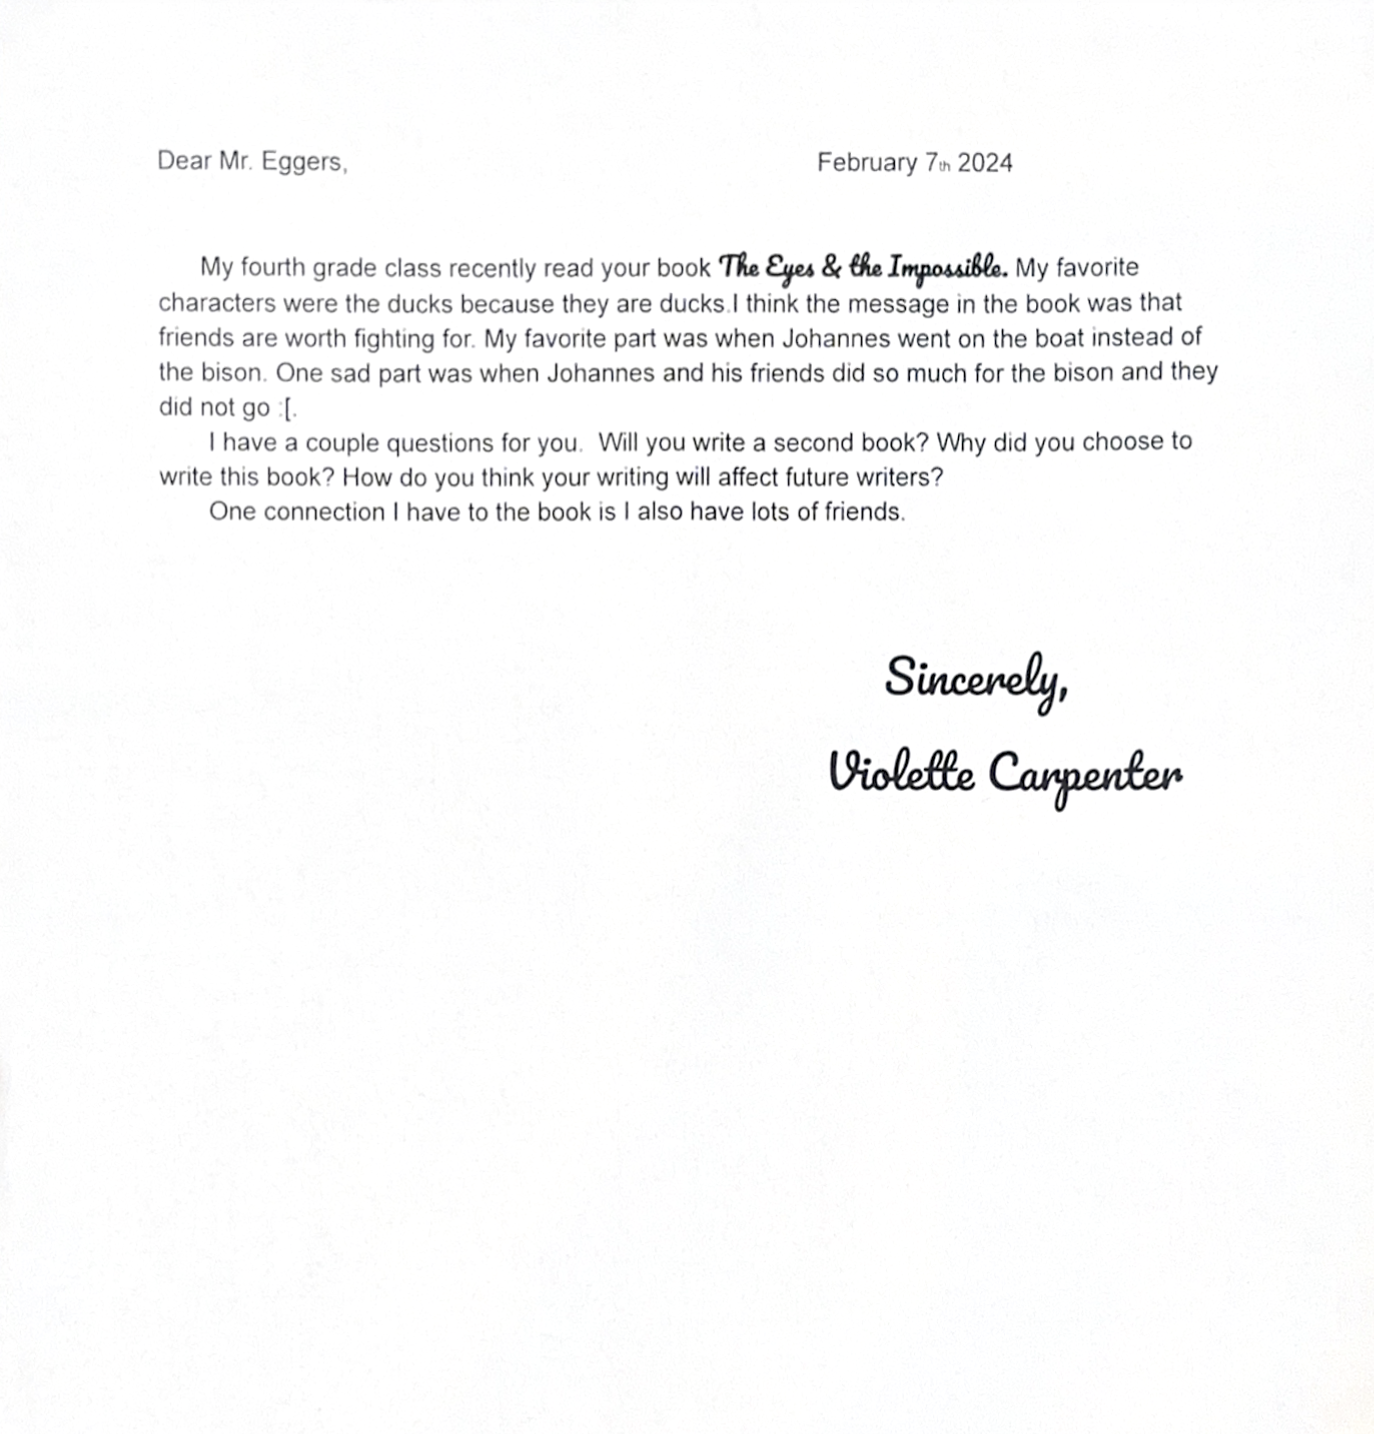 Dear Mr. Eggers, February 7th 2024
My fourth grade class recently read your book The Eyes & the Impossible. My favorite
characters were the ducks because they are ducks.I think the message in the book was that
friends are worth fighting for. My favorite part was when Johannes went on the boat instead of
the bison. One sad part was when Johannes and his friends did so much for the bison and they
did not go :[.
I have a couple questions for you.  Will you write a second book? Why did you choose to
write this book? How do you think your writing will affect future writers?
One connection I have to the book is I also have lots of friends.
Sincerely,
Violette Carpenter